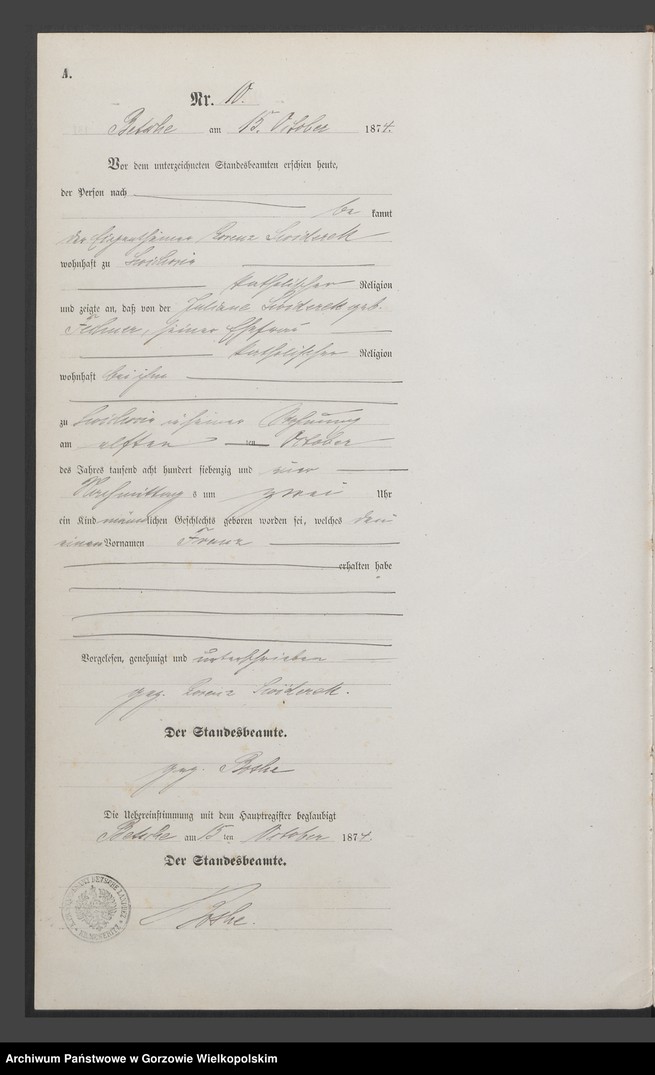 A.
Nr. 10.
Betsche am 15. October 1874.
Vor dem unterzeichneten Standesbeamten erschien heute,
der Person nach
be kannt
der Eigenthümer Lorenz Swiderek
wohnhaft zu
katholischer Religion
und zeigte an, daß von der Juliane Swiderek geb.
seiner Ehefrau
katholischer Religion
wohnhaft bei ihm
zu in seiner Wohnung
am elften ten October
des Jahres tausend acht hundert siebenzig und vier
Nachmittags um zwei Uhr
ein Kind männlichen Geschlechts geboren worden sei, welches den
einen Vornamen Franz
erhalten habe
Vorgelesen, genehmigt und unterschrieben
gez. Lorenz Swiderek.
Der Standesbeamte.
gez. Bothe
Die Uebereinstimmung mit dem Hauptregister beglaubigt
Betsche am 15 ten October 1874.
Der Standesbeamte.
Bothe.
Archiwum Państwowe w Gorzowie Wielkopolskim